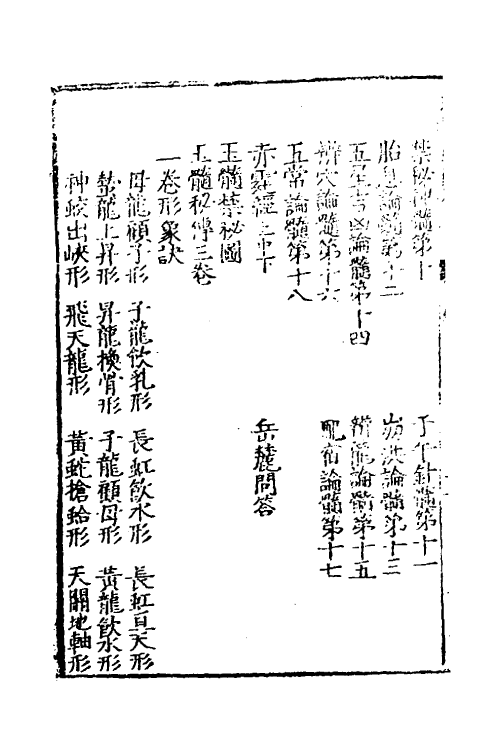 禁秘論髓第十　子午針髓第十一
胎息論髓第十二　崩洪論髓第十三
五星吉凶論髓第十四　辨龍論髓第十五
辨穴論髓第十六　配病論髓第十七
五常論髓第十八
赤霆經上中下　岳麓問答
玉髓禁秘圖
玉髓秘傳三卷
一卷形象訣
母龍顧子形　子龍飲乳形　長虹飲水形　長虹亘天形
蟄龍上昇形　昇龍換骨形　子龍顧母形　黃龍飲水形
神蛟出峽形　飛天龍形　黃蛇搶蛤形　天關地軸形